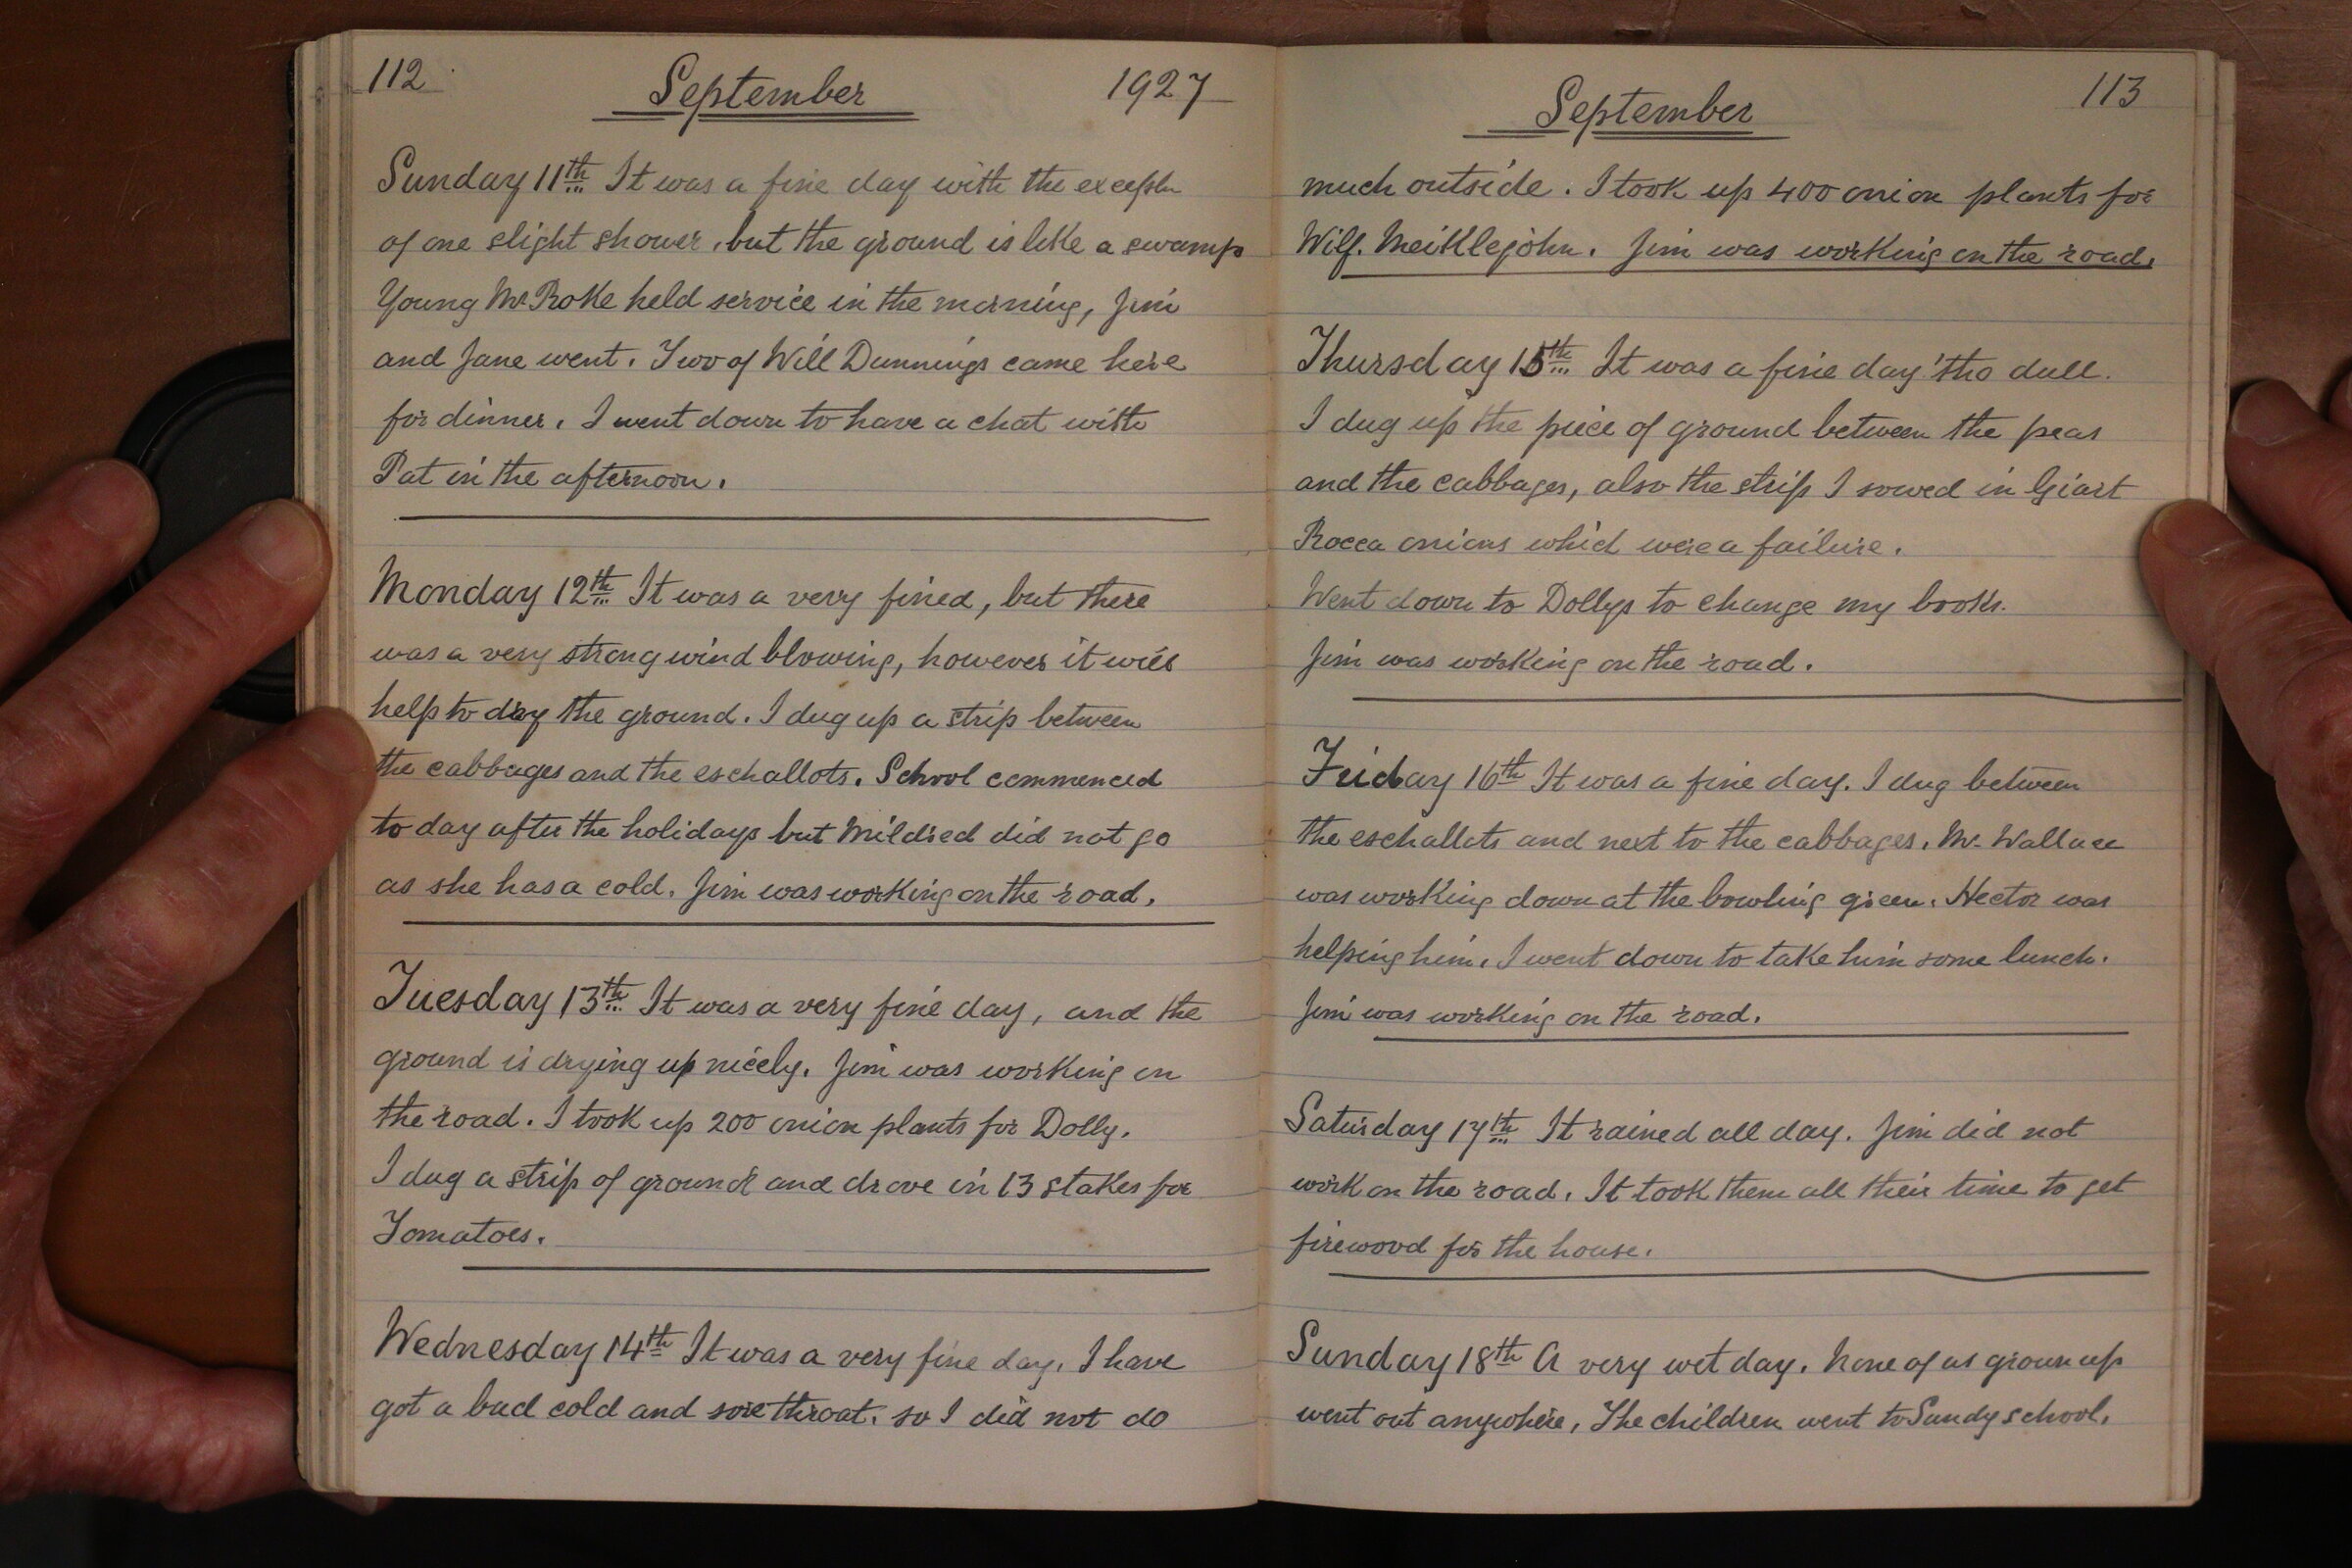 112 September 1927
Sunday 11th It was a fine day with the exceptn
of one slight shower, but the ground is like a swamp
Young Mr Roke held service in the morning, Jim
and Jane went. Two of Will Dunnings came here
for dinner. I went down to have a chat with
Pat in the afternoon.
Monday 12th It was a very fined, but there
was a very strong wind blowing, however it will
help to dry the ground. I dug up a strip between
the cabbages and the eschallots. School commenced
to day after the holidays but Mildred did not go
as she has a cold. Jim was working on the road.
Tuesday 13th It was a very fine day, and the
ground is drying up nicely. Jim was working on
the road. I took up 200 onion plants for Dolly.
I dug a strip of ground and drove in 13 stakes for
Tomatoes.
Wednesday 14th It was a very fine day. I have
got a bad cold and sore throat. so I did not do
September 113
much outside. I took up 400 onion plants for
Wilf. Meiklejohn. Jim was working on the road.
Thursday 15th It was a fine day 'tho dull.
I dug up the piece of ground between the peas
and the cabbages, also the strip I sowed in Giart
Rocca onions which were a failure.
Went down to Dollys to change my books.
Jim was working on the road.
Friday 16th It was a fine day. I dug between
the eschallots and next to the cabbages. Mr. Wallace
was working down at the bowling green. Hector was
helping him. I went down to take him some lunch.
Jim was working on the road.
Saturday 17th It rained all day. Jim did not
work on the road. It took them all their time to get
firewood for the house.
Sunday 18th A very wet day. None of us grown up
went out anywhere, The children went to Sundy school.